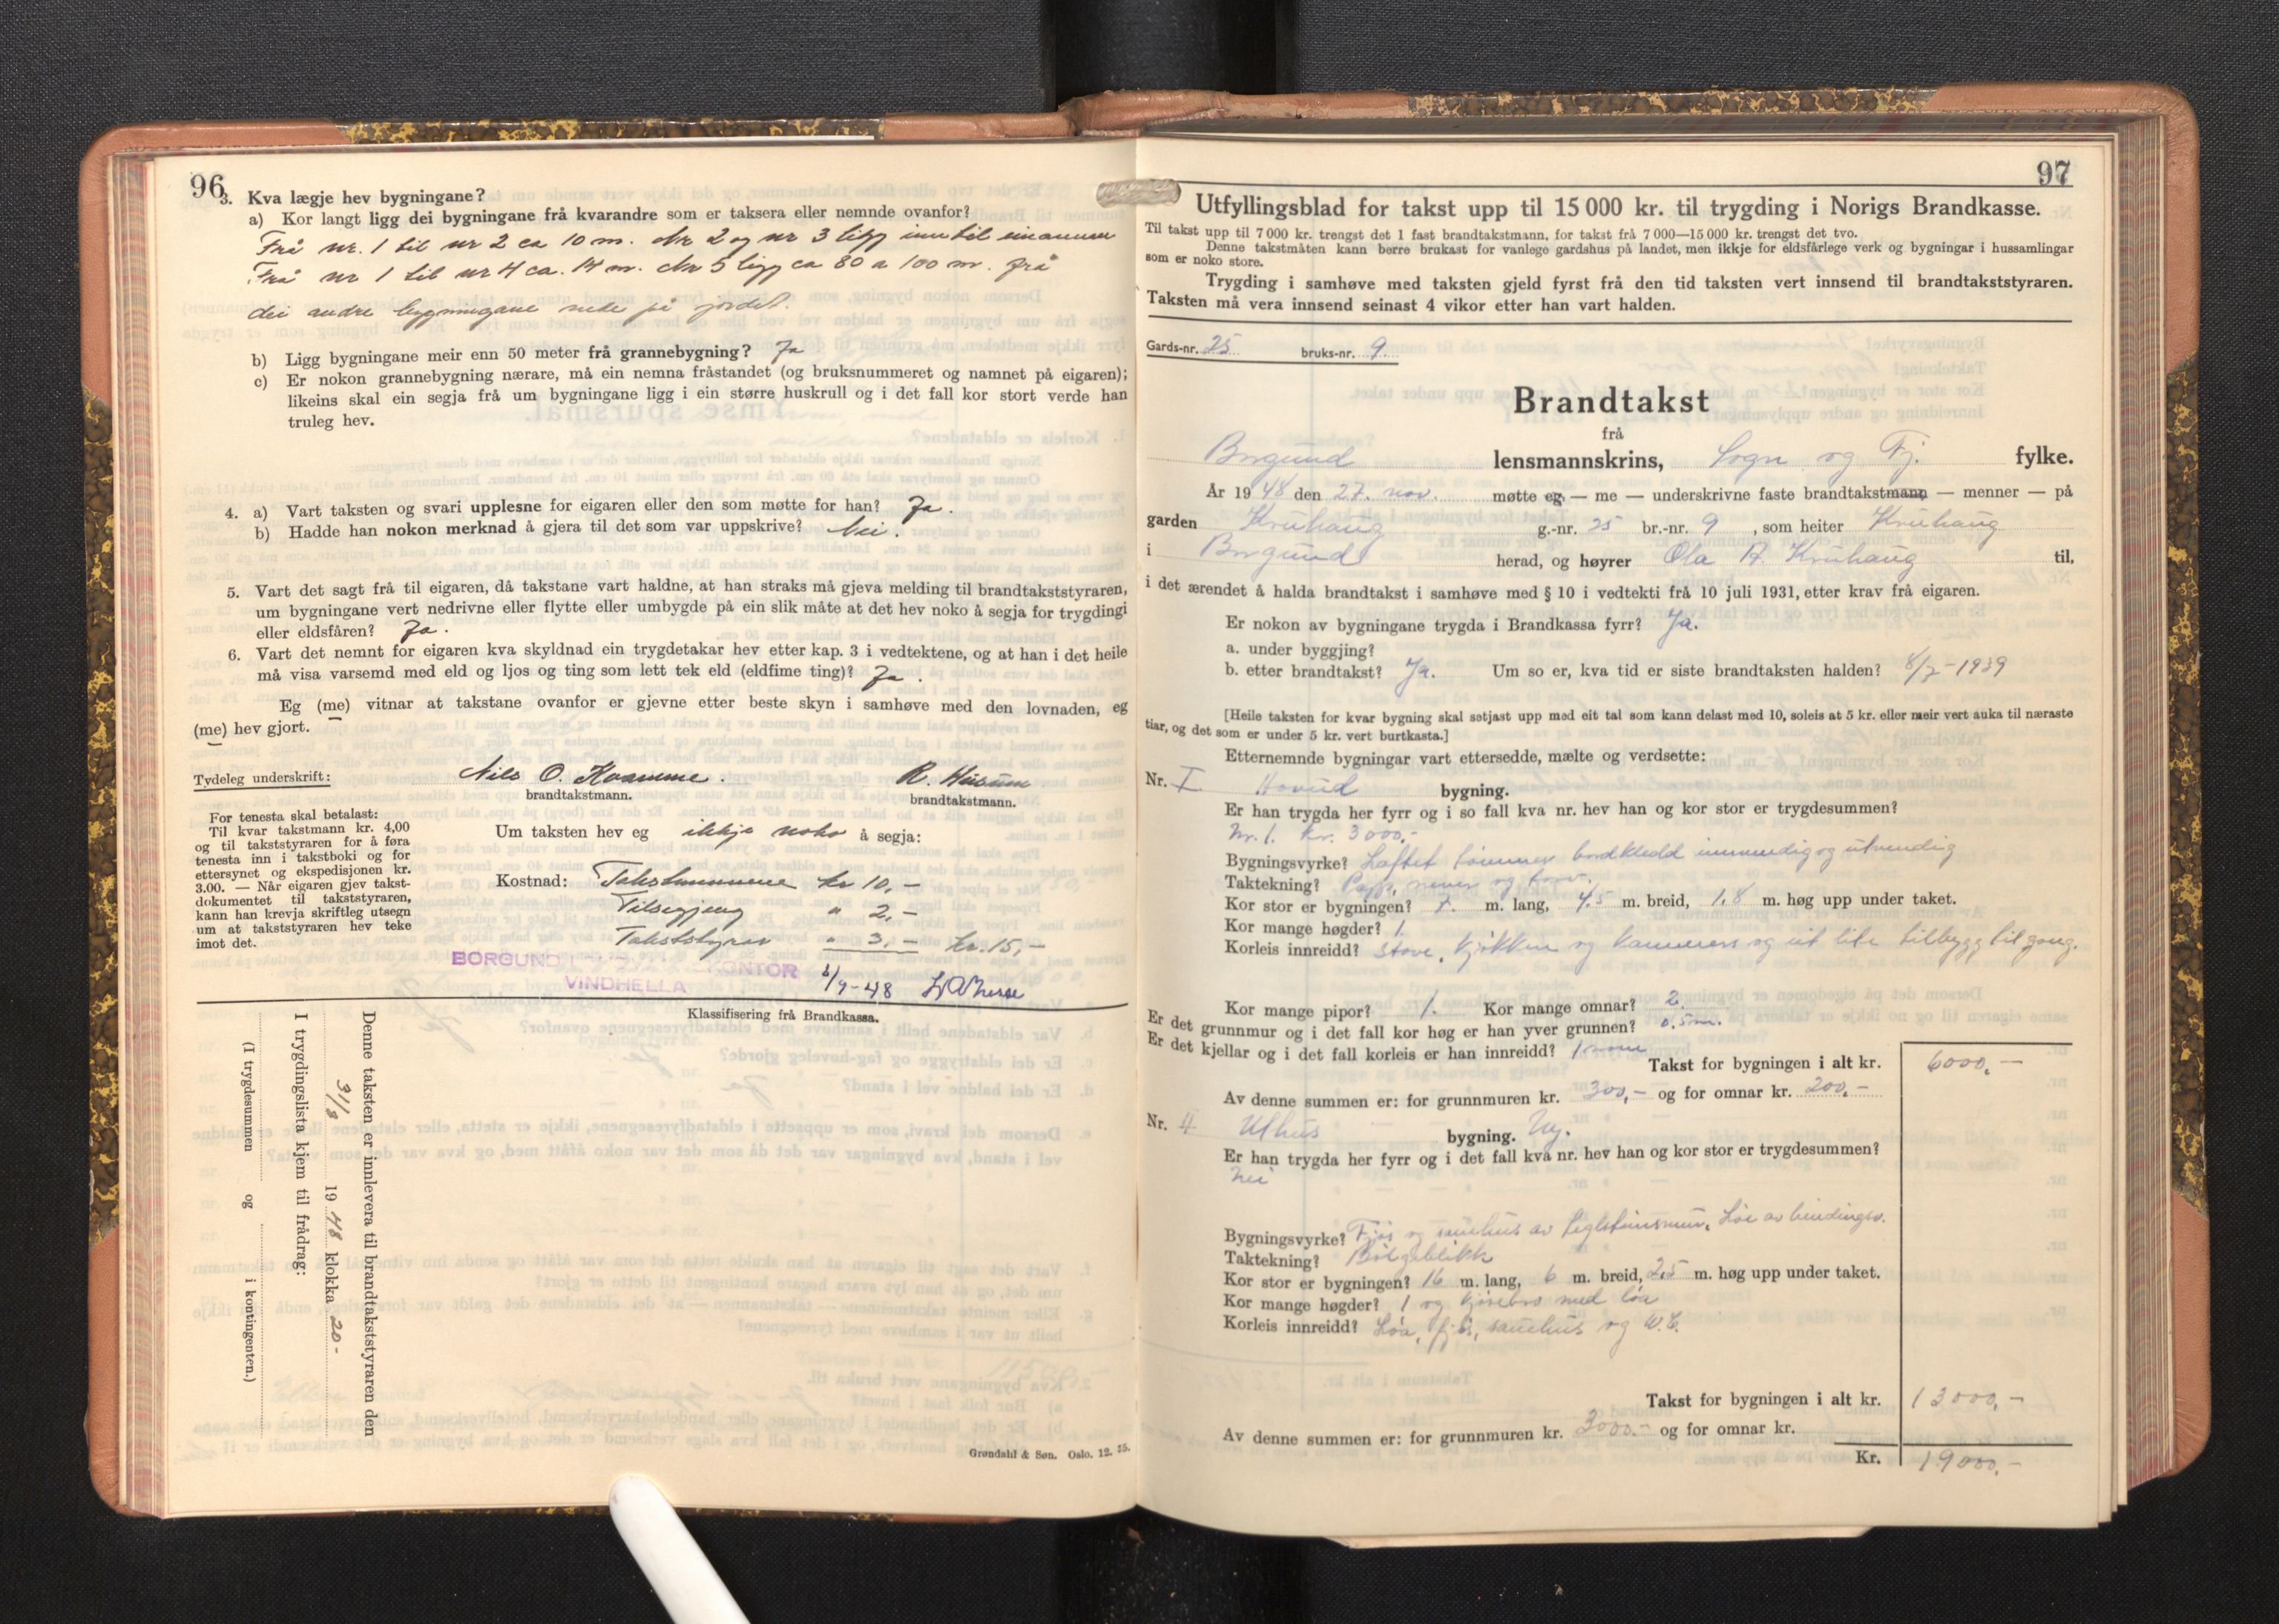 96
3. Kva lægje hev bygningane?
a) Kor langt ligg dei bygningane frå kvarandre som er taksera eller nemnde ovanfor?
Frå nr. 1 til nr 2 ca 10 m. Nr 2 og nr 3 ligg inntil einannan
Frå nr 1 til nr 4 ca. 14 m. Nr 5 ligg ca 80 a 100 m. frå
dei andre bygningane nede på jordet.
b) Ligg bygningane meir enn 50 meter frå grannebygning? Ja
c) Er nokon grannebygning nærare, må ein nemna fråstandet (og bruksnummeret og namnet på eigaren);
likeins skal ein segja frå um bygningane ligg i ein større huskrull og i det fall kor stort verde han
truleg hev.
4. a) Vart taksten og svari upplesne for eigaren eller den som møtte for han? Ja.
b) Hadde han nokon merknad å gjera til det som var uppskrive? Nei.
5. Vart det sagt frå til eigaren, då takstane vart haldne, at han straks må gjeva melding til brandtakststyraren,
um bygningane vert nedrivne eller flytte eller umbygde på ein slik måte at det hev noko å segja for trygdingi
eller eldsfåren? Ja.
6. Vart det nemnt for eigaren kva skyldnad ein trygdetakar hev etter kap. 3 i vedtektene, og at han i det heile
må visa varsemd med eld og ljos og ting som lett tek eld (eldfime ting)? Ja.
Eg (me) vitnar at takstane ovanfor er gjevne etter beste skyn i samhøve med den lovnaden, eg
(me) hev gjort.
Tydeleg underskrift: Nils O. Kvamme. R. Husum
brandtakstmann. brandtakstmann.
For tenesta skal betalast:
Til kvar takstmann kr. 4,00
og til takststyraren for å føra
tenesta inn i takstboki og for
ettersynet og ekspedisjonen kr.
3.00. — Når eigaren gjev takst-
dokumentet til takststyraren,
kann han krevja skriftleg utsegn
um at takststyraren hev teke
imot det.
Um taksten hev eg ikkje noko å segja:
Kostnad: Takstmennene kr 10,-
Tilsegjing " 2,-
Takststyrar " 3,- kr. 15,-
BORGUND KONTOR
VINDHELLA
1/9-48
Klassifisering frå Brandkassa.
Denne taksten er innlevera til brandtakststyraren den
31/8 1948 klokka 20-
I trygdingslista kjem til frådrag:
(I trygdesummen og i kontingenten.)
Grøndahl & Søn. Oslo. 12. 35.
97
Utfyllingsblad for takst upp til 15 000 kr. til trygding i Norigs Brandkasse.
Til takst upp til 7 000 kr. trengst det 1 fast brandtakstmann, for takst frå 7 000—15 000 kr. trengst det tvo.
Denne takstmåten kann berre brukast for vanlege gardshus på landet, men ikkje for eldsfårlege verk og bygningar i hussamlingar
som er noko store.
Trygding i samhøve med taksten gjeld fyrst frå den tid taksten vert innsend til brandtakststyraren.
Taksten må vera innsend seinast 4 vikor etter han vart halden.
Gards-nr. 25 bruks-nr. 9.
Brandtakst
frå
Borgund lensmannskrins, Sogn og Fj. fylke.
År 1948 den 27. nov. møtte eg — me — underskrivne faste brandtakstmann — menner — på
garden Kruhaug g.-nr. 25 br.-nr. 9, som heiter Kruhaug
i Borgund herad, og høyrer Ola A. Kruhaug til,
i det ærendet å halda brandtakst i samhøve med § 10 i vedtekti frå 10 juli 1931, etter krav frå eigaren.
Er nokon av bygningane trygda i Brandkassa fyrr? Ja.
a. under byggjing?
b. etter brandtakst? Ja. Um so er, kva tid er siste brandtaksten halden? 8/7-1939
[Heile taksten for kvar bygning skal setjast upp med eit tal som kann delast med 10, soleis at 5 kr. eller meir vert auka til næraste
tiar, og det som er under 5 kr. vert burtkasta.]
Etternemnde bygningar vart ettersedde, mælte og verdsette:
Nr. I Hovud bygning.
Er han trygda her fyrr og i so fall kva nr. hev han og kor stor er trygdesummen?
Nr. 1. kr. 3000,-
Bygningsvyrke? Laftet tømmer bordkledd innvendig og utvendig
Taktekning? Papp, never og torv.
Kor stor er bygningen? 7. m. lang, 4,5 m. breid, 1,8 m. høg upp under taket.
Kor mange høgder? 1.
Korleis innreidd? Stove, kjøkken og kammers og eit lite tilbygg til gang.
Kor mange pipor? 1. Kor mange omnar? 2.
Er det grunnmur og i det fall kor høg er han yver grunnen? 0,5 m.
Er det kjellar og i det fall korleis er han innreidd? 1 rom
Takst for bygningen i alt kr. 6000,-
Av denne summen er: for grunnmuren kr. 300,- og for omnar kr. 200,-
Nr. 4 Uthus bygning. Ny.
Er han trygda her fyrr og i det fall kva nr. hev han og kor stor er trygdesummen?
Nei
Bygningsvyrke? Fjøs og sauehus av teglsteinsmur, Løe av bindingsv.
Taktekning? Bølgeblikk
Kor stor er bygningen? 16 m. lang, 6 m. breid, 2,5 m. høg upp under taket.
Kor mange høgder? 1 og kjørebro med løa
Korleis innreidd? Løa, fjøs, sauehus og W.C.
Takst for bygningen i alt kr. 13000,-
Av denne summen er: for grunnmuren kr. 3000.- og for omnar kr.
Kr. 19000,-